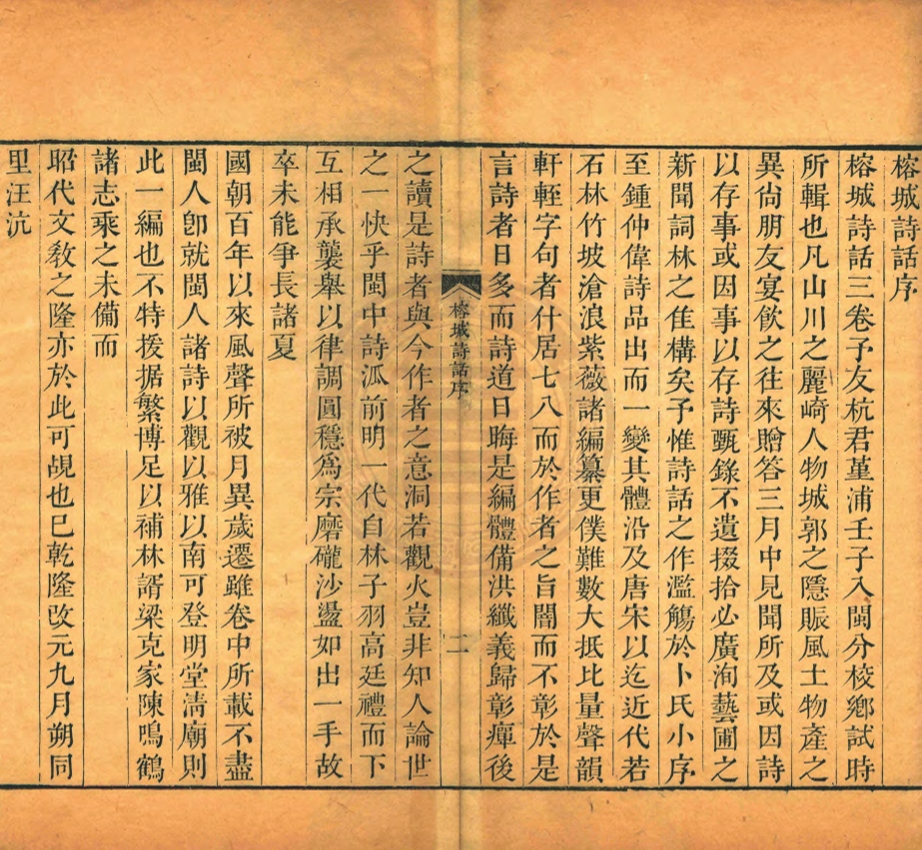 榕城詩話序
榕城詩話三卷予友杭君堇浦壬子入閩分校鄉試時
所輯也凡山川之麗崎人物城郭之隱賑風土物產之
異尙朋友宴飲之往來贈答三月中見聞所及或因詩
以存事或因事以存詩甄錄不遺掇拾必廣洵藝圃之
新聞詞林之隹構矣予惟詩話之作濫觴於卜氏小序
至鍾仲偉詩品出而一變其體沿及唐宋以迄近代若
石林竹坡滄浪紫薇諸編纂更僕難數大抵比量聲韻
軒輊字句者什居七八而於作者之旨闇而不彰於是
言詩者日多而詩道日晦是編體備洪纖義歸彰癉後
榕城詩話序
二
之讀是詩者與今作者之意洞若觀火豈非知人論世
之一快乎閩中詩派前明一代自林子羽高廷禮而下
互相承襲舉以律調圓穩爲宗磨礲沙盪如出一手故
卒未能爭長諸夏
國朝百年以來風聲所被月異歲遷雖卷中所載不盡
閩人卽就閩人諸詩以觀以雅以南可登明堂淸廟則
此一編也不特援据繁博足以補林諝梁克家陳鳴鶴
諸志乘之未備而
昭代文敎之隆亦於此可覘也已乾隆改元九月朔同
里汪沆